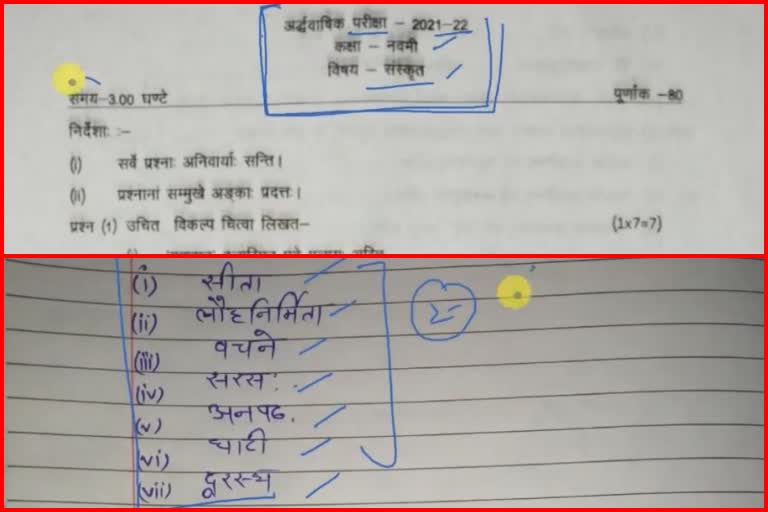 अर्द्धवार्षिक परीक्षा – 2021-22
कक्षा – नवमी
विषय – संस्कृत
समय–3.00 घण्टे पूर्णांक –80
निर्देशाः :–
(i) सर्वे प्रश्नाः अनिवार्याः सन्ति।
(ii) प्रश्नानां सम्मुखे अङ्काः प्रदत्तः।
प्रश्न (1) उचित विकल्प चित्वा लिखत– (1x7=7)
(i) सीता
(ii) लौहनिर्मिता
(iii) वचने
(iv) सरसः
(v) अनपढ.
(vi) घाटी
(vii) दूरस्थ